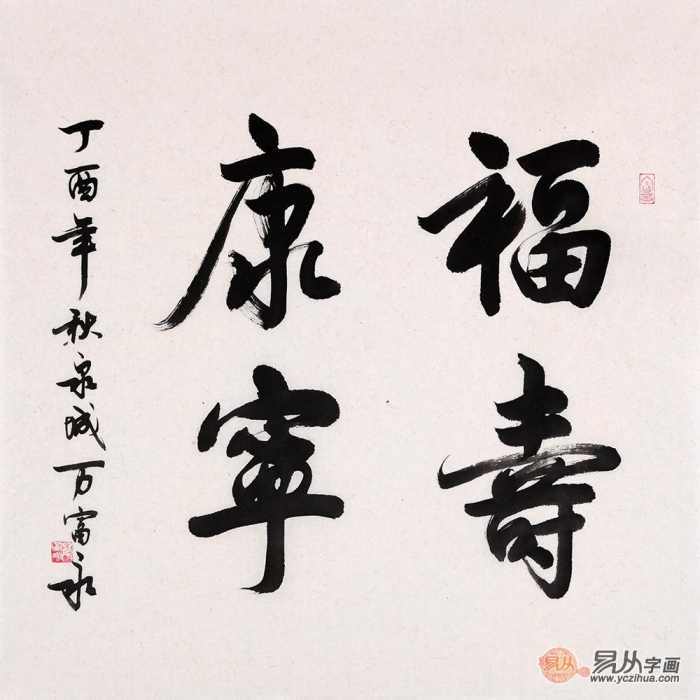 福壽
康寧
丁酉年秋泉城万富永
易从字画
www.yczihua.com